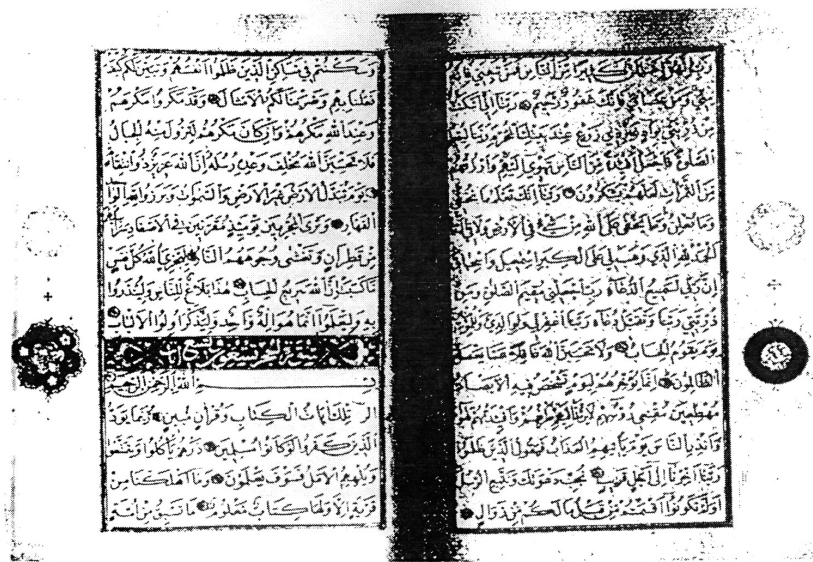 رب انهن اضللن كثيرا من الناس فمن تبعني فانه
مني ومن عصاني فانك غفور رحيم ربنا اني اسكنت
من ذريتي بواد غير ذي زرع عند بيتك المحرم ربنا ليقيموا
الصلوة فاجعل افئدة من الناس تهوي اليهم وارزقهم
من الثمرات لعلهم يشكرون ربنا انك تعلم ما نخفي
وما نعلن وما يخفى على الله من شيء في الارض ولا في السماء
الحمد لله الذي وهب لي على الكبر اسمعيل واسحاق
ان ربي لسميع الدعاء رب اجعلني مقيم الصلوة ومن
ذريتي ربنا وتقبل دعاء ربنا اغفر لي ولوالدي وللمؤمنين
يوم يقوم الحساب ولا تحسبن الله غافلا عما يعمل
الظالمون انما يؤخرهم ليوم تشخص فيه الابصار
مهطعين مقنعي رؤسهم لا يرتد اليهم طرفهم وافئدتهم هواء
وانذر الناس يوم ياتيهم العذاب فيقول الذين ظلموا
ربنا اخرنا الى اجل قريب نجب دعوتك ونتبع الرسل
اولم تكونوا اقسمتم من قبل ما لكم من زوال
وسكنتم في مساكن الذين ظلموا انفسهم وتبين لكم كيف
فعلنا بهم وضربنا لكم الامثال وقد مكروا مكرهم
وعند الله مكرهم وان كان مكرهم لتزول منه الجبال
فلا تحسبن الله مخلف وعده رسله ان الله عزيز ذو انتقام
يوم تبدل الارض غير الارض والسموات وبرزوا لله الواحد
القهار وترى المجرمين يومئذ مقرنين في الاصفاد سرابيلهم
من قطران وتغشى وجوههم النار ليجزي الله كل نفس
ما كسبت ان الله سريع الحساب هذا بلاغ للناس ولينذروا
به وليعلموا انما هو اله واحد وليذكر اولوا الالباب
سورة الحجر تسعون وتسع ايات
بسم الله الرحمن الرحيم
الر تلك ايات الكتاب وقران مبين ربما يود
الذين كفروا لو كانوا مسلمين ذرهم ياكلوا ويتمتعوا
ويلههم الامل فسوف يعلمون وما اهلكنا من
قرية الا ولها كتاب معلوم ما تسبق من امة